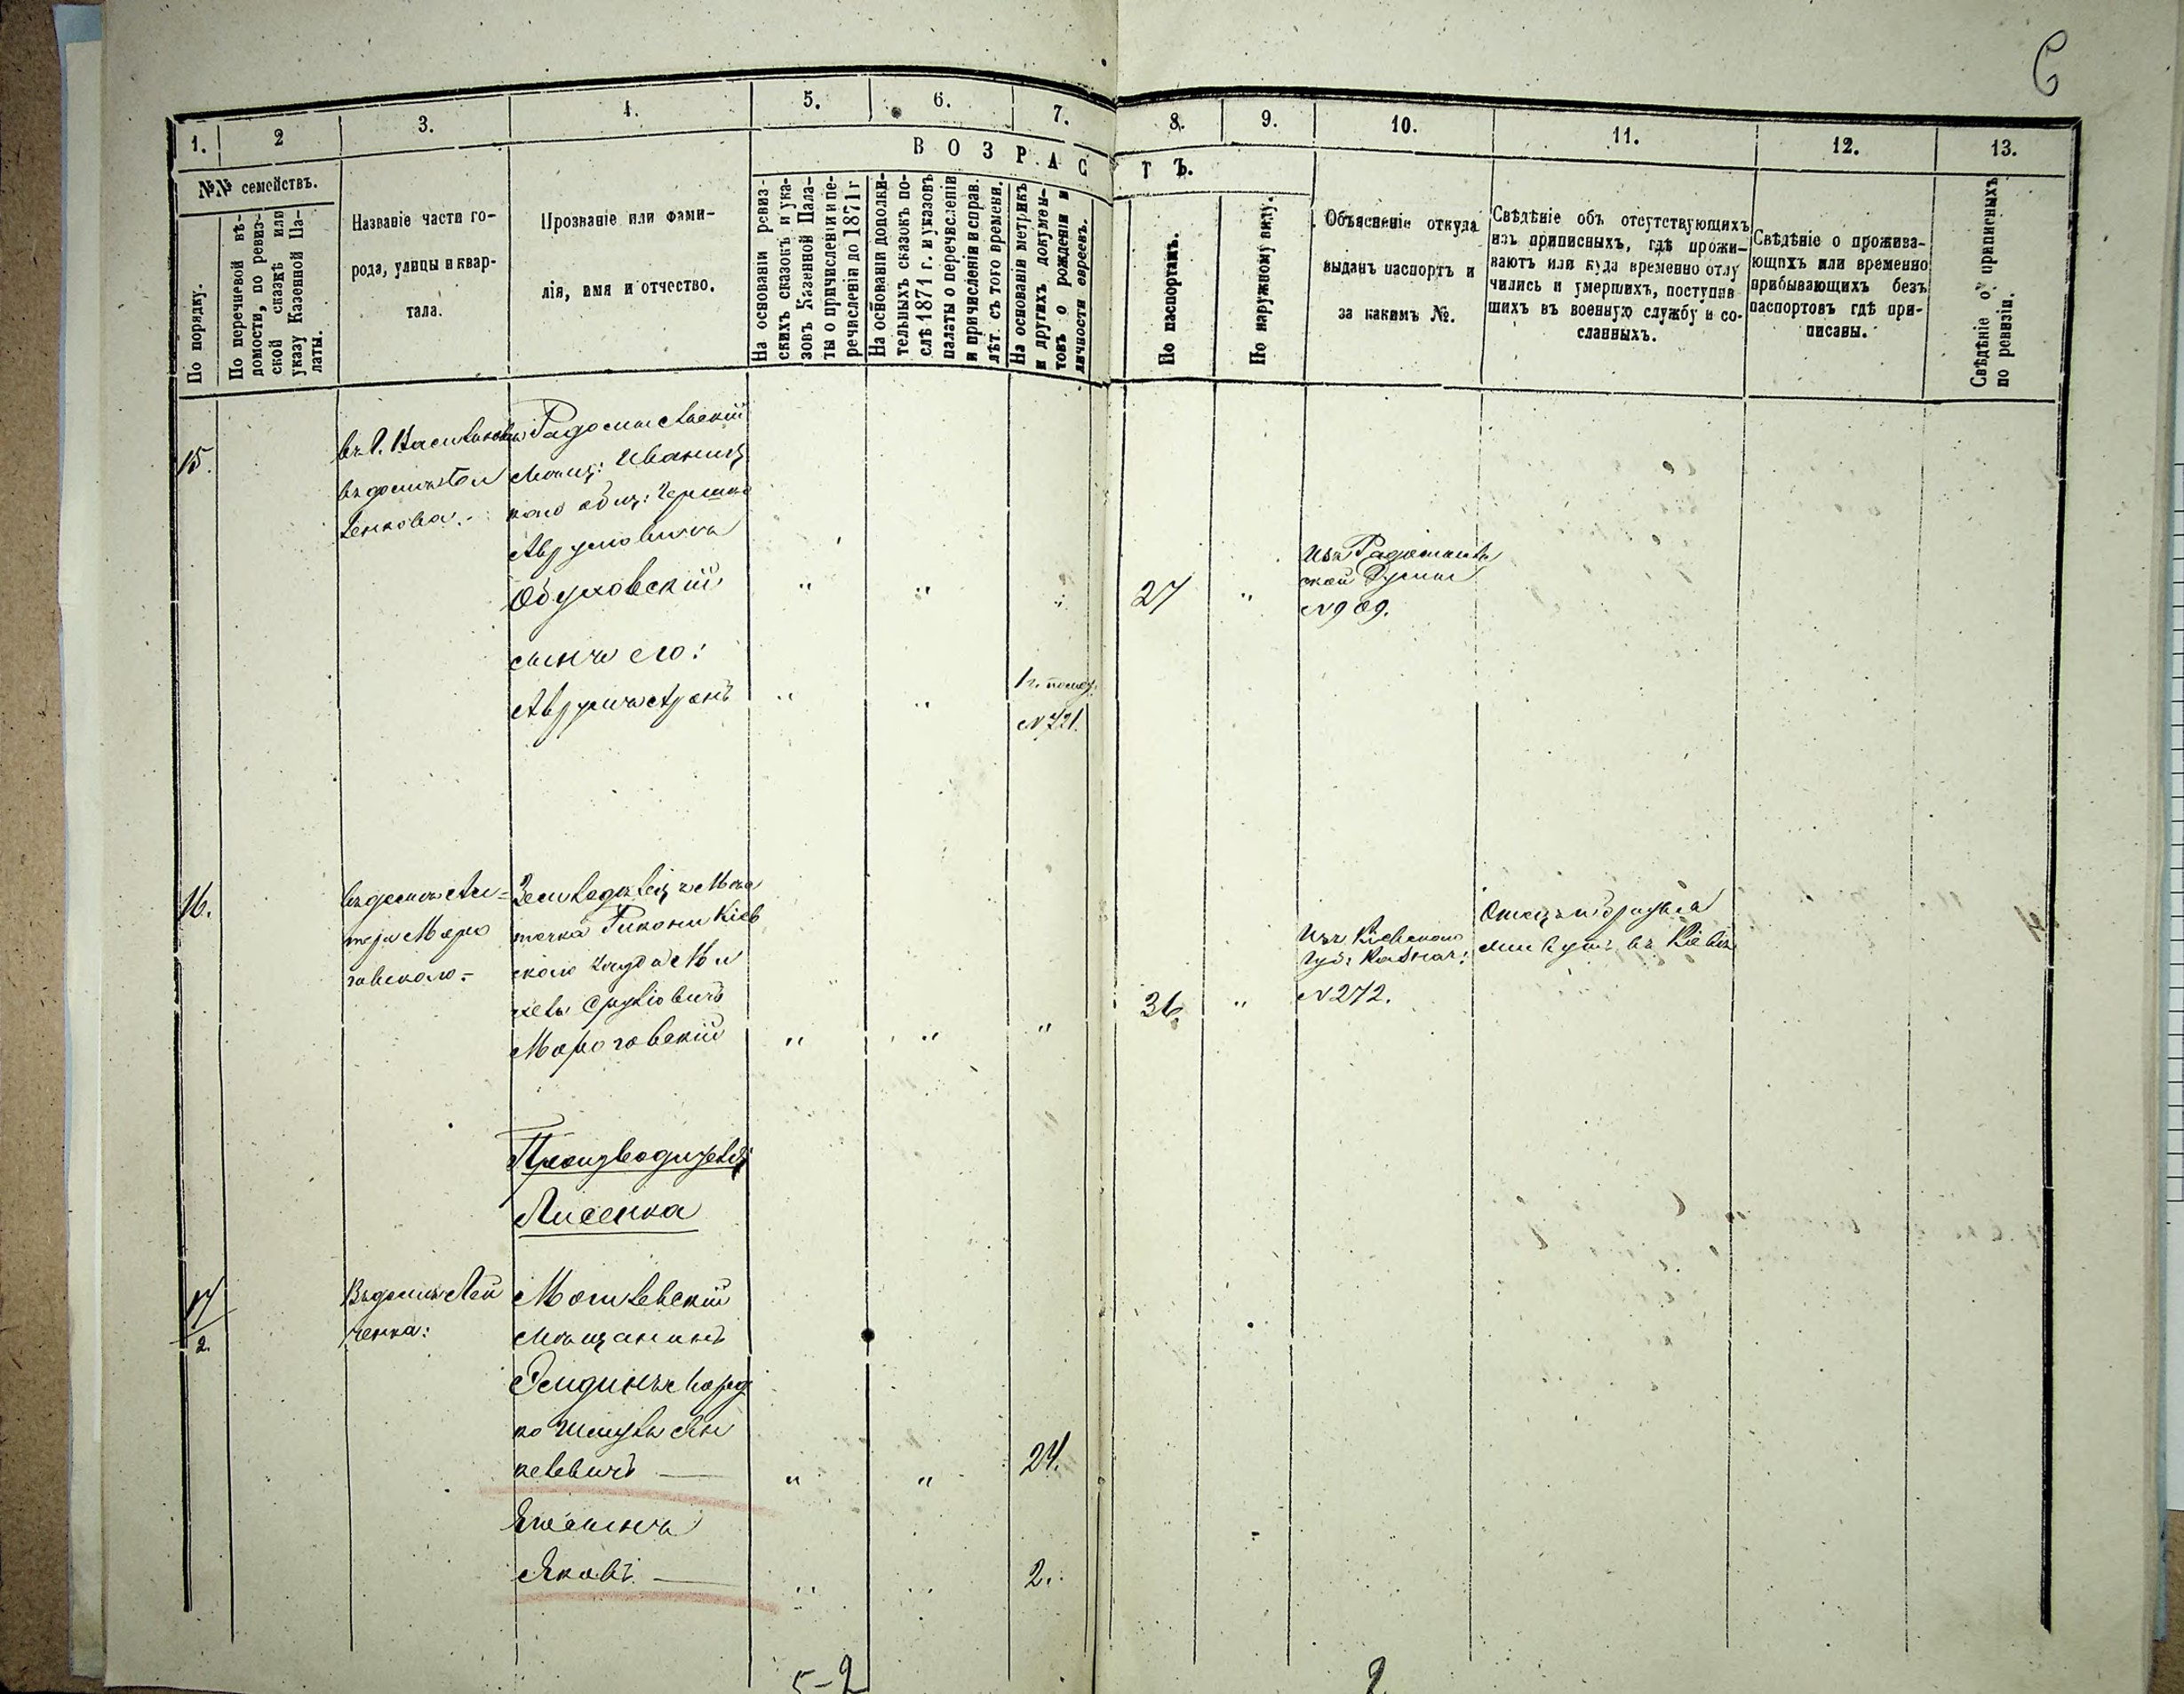 6
1. 2 3. 4. 5. 6. 7. 8. 9. 10. 11. 12. 13.
№№ семействъ.
По порядку.
По перечневой вѣ-
домости, по ревиз-
ской сказкѣ или
указу Казенной Па-
латы.
Названіе части го-
рода, улицы и квар-
тала.
Прозваніе или фами-
лія, имя и отчество.
ВОЗРАСТЪ.
На основаніи ревиз-
скихъ сказокъ и ука-
зовъ Казенной Пала-
ты о причисленіи и пе-
речисленіи до 1871 г
На основаніи дополни-
тельныхъ сказокъ по-
слѣ 1871 г. и указовъ
палаты о перечисленіи
и причисленіи и справ.
лѣт. съ того времени.
На основаніи метрикъ
и другихъ докумен-
товъ о рожденіи и
личности евреевъ.
По паспортамъ.
По наружному виду.
Объясненіе откуда
выданъ паспортъ и
за какимъ №.
Свѣдѣніе объ отсутствующихъ
изъ приписныхъ, гдѣ прожи-
ваютъ или куда временно отлу
чились и умершихъ, поступив
шихъ въ военную службу и со-
сланныхъ.
Свѣдѣніе о прожива-
ющихъ или временно
прибывающихъ безъ
паспортовъ гдѣ при-
писаны.
Свѣдѣніе о приписныхъ
по ревизіи.
15.
въ г. Васильковѣ
въ домѣ
Радомысльскій
Мѣщ: Иваниц
каго общ: Гершко
Аврумовичъ
Обуховскій
27
Изъ Радомысль
ской Думы
№909.
сынъ его:
Аврумъ Аронъ
1 г.
№721.
16.
въ домѣ
скаго уѣзда
Сруліовичъ
Мороговскій
36
Изъ Кіевскаго
Губ: Казнач:
№272.
Отецъ и
живутъ въ Кіевѣ
Производитель
Лисенка
17/2.
Въ домѣ Лев
ченка:
Могилевскій
Мѣщанинъ
ко Шмуль Ян
келевичъ —
24.
Его сынъ
Яковъ. —
2.
5-2
2